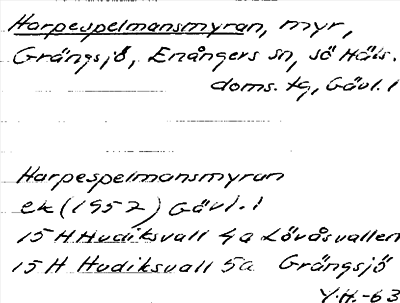 Harpespelmansmyran, myr,
Grängsjö, Enångers sn, sö Häls.
doms. tg, Gävl. l
Harpespelmansmyran
ek (1952) Gävl. l
15 H Hudiksvall 4a Lövåsvallen
15 H Hudiksvall 5a Grängsjö
Y.H.-63